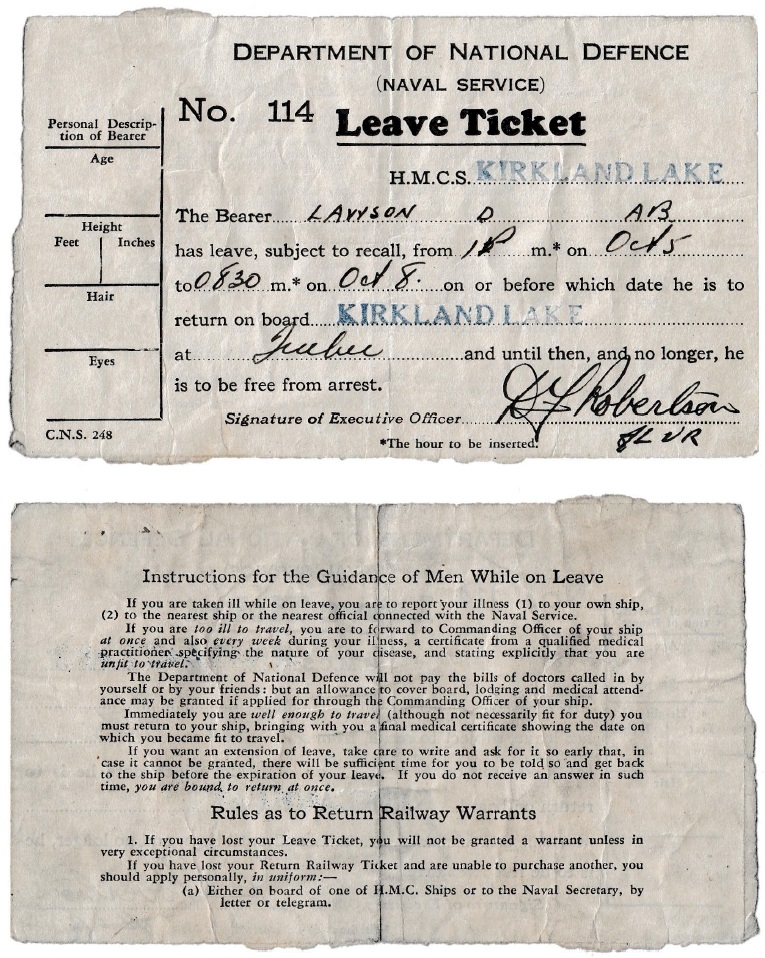 DEPARTMENT OF NATIONAL DEFENCE
(NAVAL SERVICE)
No. 114
Leave Ticket
Personal Descrip-
tion of Bearer
Age
Height
Feet Inches
Hair
Eyes
C.N.S. 248
H.M.C.S. KIRKLAND LAKE
The Bearer LAWSON D AB
has leave, subject to recall, from m.* on Oct 5
to 0830 m.* on Oct 8. on or before which date he is to
return on board KIRKLAND LAKE
at and until then, and no longer, he
is to be free from arrest.
Signature of Executive Officer Robertson
*The hour to be inserted.
Instructions for the Guidance of Men While on Leave
If you are taken ill while on leave, you are to report your illness (1) to your own ship,
(2) to the nearest ship or the nearest official connected with the Naval Service.
If you are too ill to travel, you are to forward to Commanding Officer of your ship
at once and also every week during your illness, a certificate from a qualified medical
practitioner specifying the nature of your disease, and stating explicitly that you are
unfit to travel.
The Department of National Defence will not pay the bills of doctors called in by
yourself or by your friends: but an allowance to cover board, lodging and medical attend-
ance may be granted if applied for through the Commanding Officer of your ship.
Immediately you are well enough to travel (although not necessarily fit for duty) you
must return to your ship, bringing with you a final medical certificate showing the date on
which you became fit to travel.
If you want an extension of leave, take care to write and ask for it so early that, in
case it cannot be granted, there will be sufficient time for you to be told so and get back
to the ship before the expiration of your leave. If you do not receive an answer in such
time, you are bound to return at once.
Rules as to Return Railway Warrants
1. If you have lost your Leave Ticket, you will not be granted a warrant unless in
very exceptional circumstances.
If you have lost your Return Railway Ticket and are unable to purchase another, you
should apply personally, in uniform:—
(a) Either on board of one of H.M.C. Ships or to the Naval Secretary, by
letter or telegram.